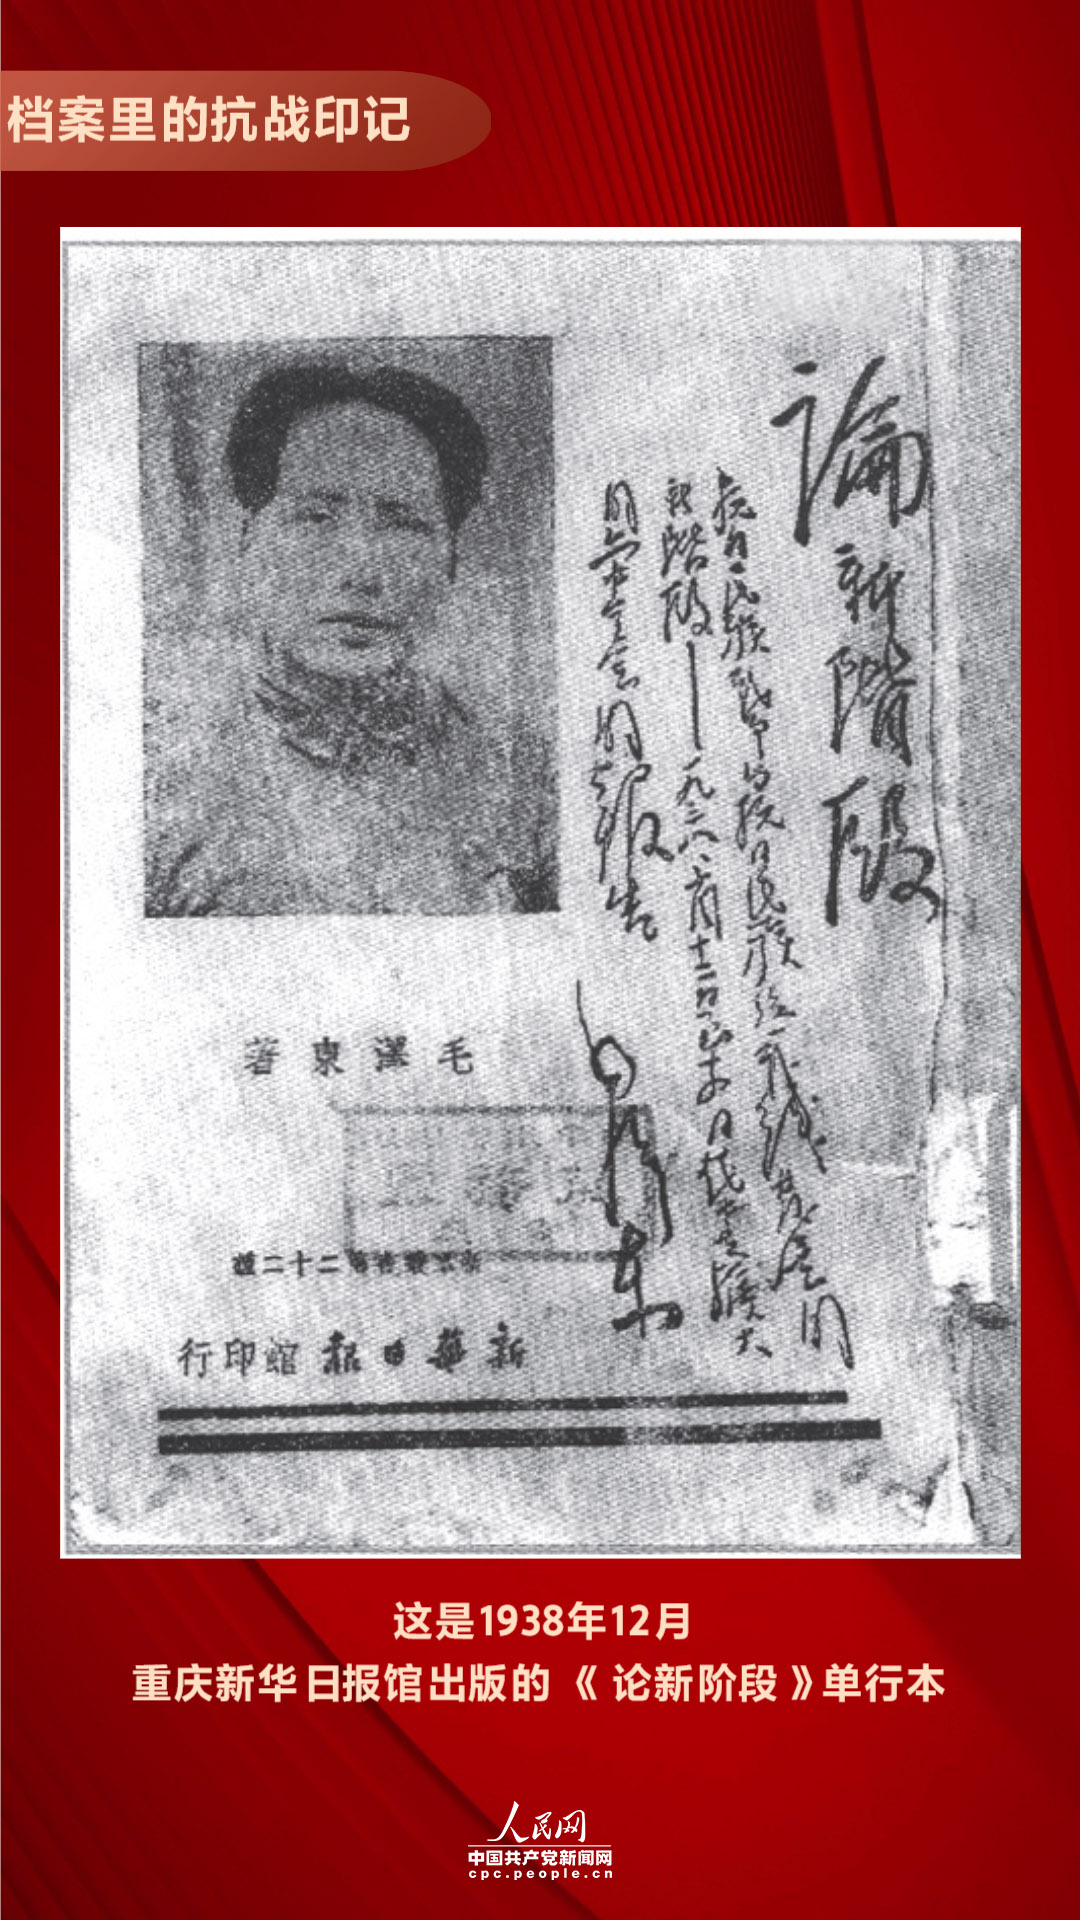 档案里的抗战印记
論新階段
抗日民族戰爭與抗日民族統一戰線發展的
新階段——一九三八、十月十二日至十四日在中共擴大
的六中全會的報告
毛澤東
毛澤東著
新華日報館印行
这是1938年12月
重庆新华日报馆出版的《论新阶段》单行本
人民网
中国共产党新闻网
cpc.people.cn